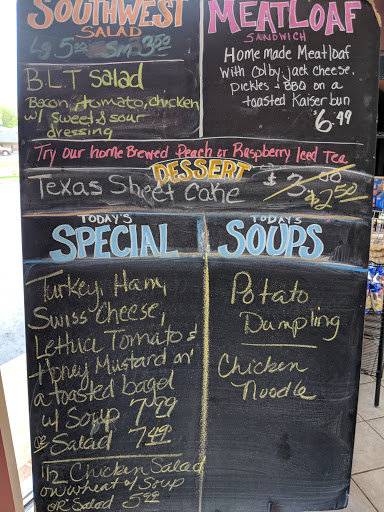 SOUTHWEST
SALAD
Lg 5.00 Sm 3.50
B.L.T Salad
Bacon, tomato, chicken
w/ sweet & sour
dressing
MEATLOAF
SANDWICH
Home made Meatloaf
with Colby jack cheese,
pickles & BBQ on a
toasted Kaiser bun
6.49
Try our home Brewed Peach or Raspberry Iced Tea
DESSERT
Texas Sheet Cake $3.00 $2.50
TODAY'S
SPECIAL
Turkey, Ham,
Swiss Cheese,
Lettuce Tomato &
Honey Mustard on
a toasted bagel
w/ Soup 7.99
or Salad 7.49
1/2 Chicken Salad
on wheat w/ Soup
OR Salad 5.99
TODAY'S
SOUPS
Potato
Dumpling
Chicken
Noodle